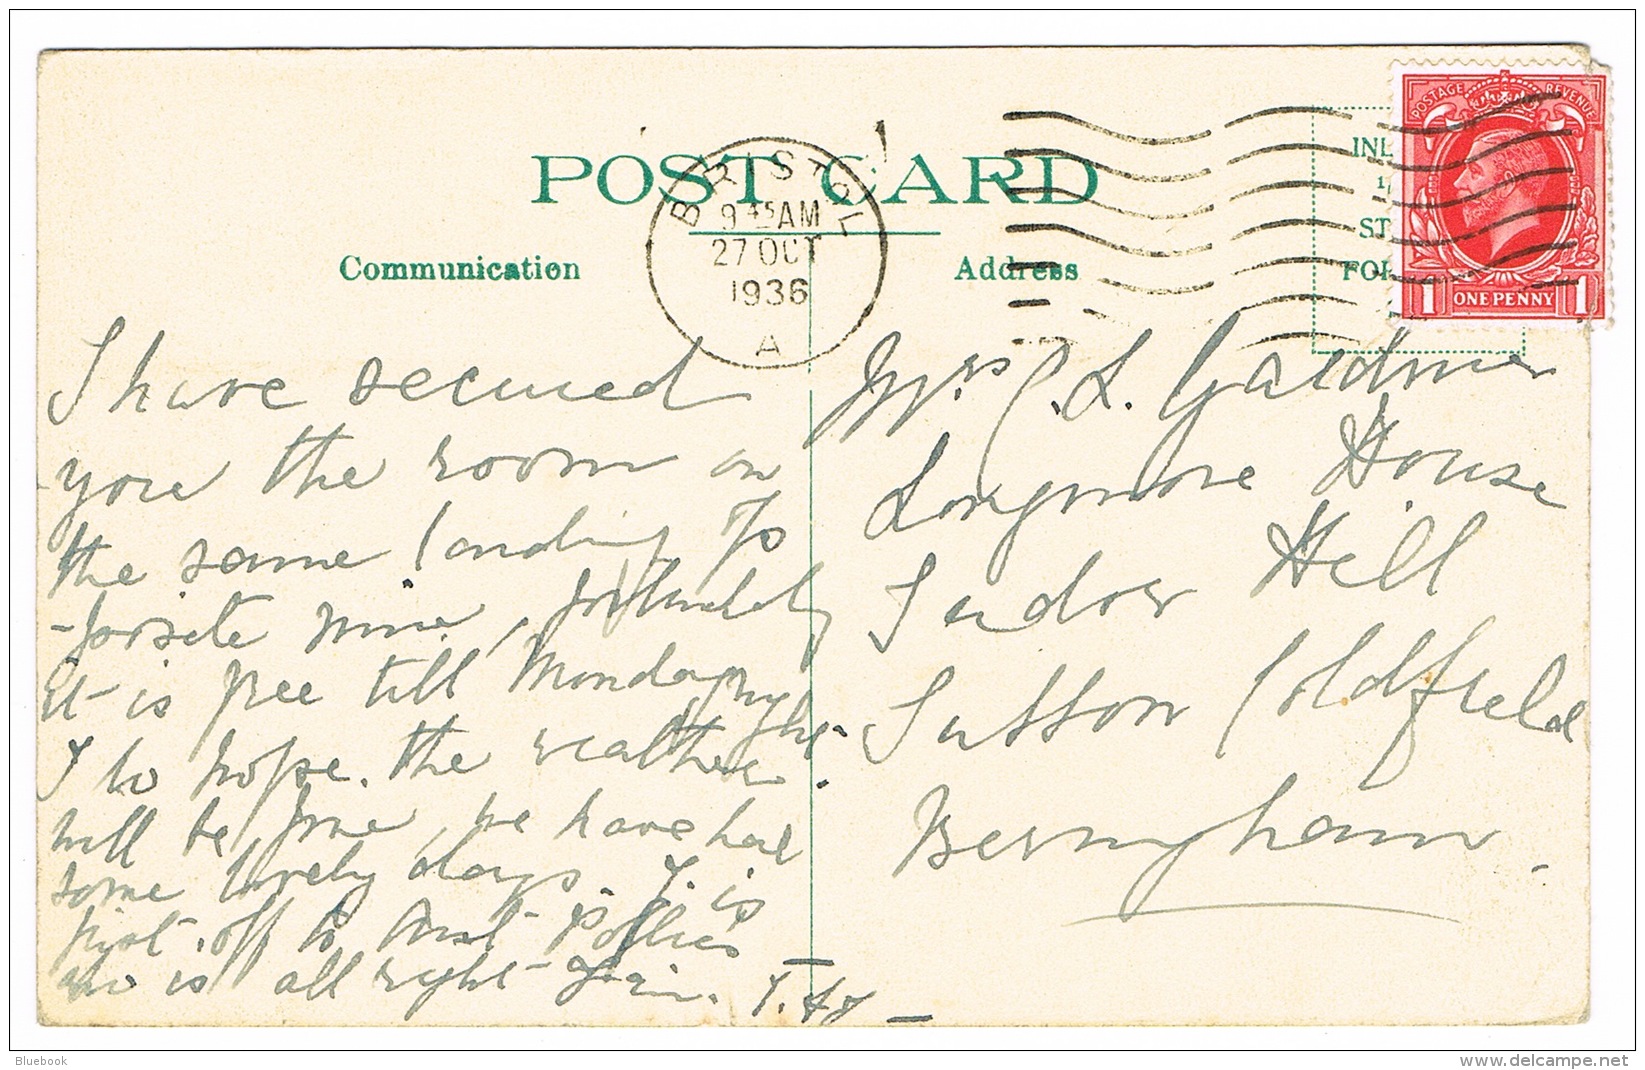 POST CARD
BRISTOL
9 45 AM
27 OCT
1936
A
POSTAGE REVENUE
1 ONE PENNY 1
INL
ST
FOR
Communication
Address
I have secured
you the room on
the same landing op
-posite mine, fortunately
it is free till Monday night
I do hope. the weather.
will be fine, we have had
some lovely days. I. is
just off to
who is all right again.
Mrs C. L. Gardner
Longmore House
Tudor Hill
Sutton Coldfield
Bermingham.
Bluebook
delcampe.net